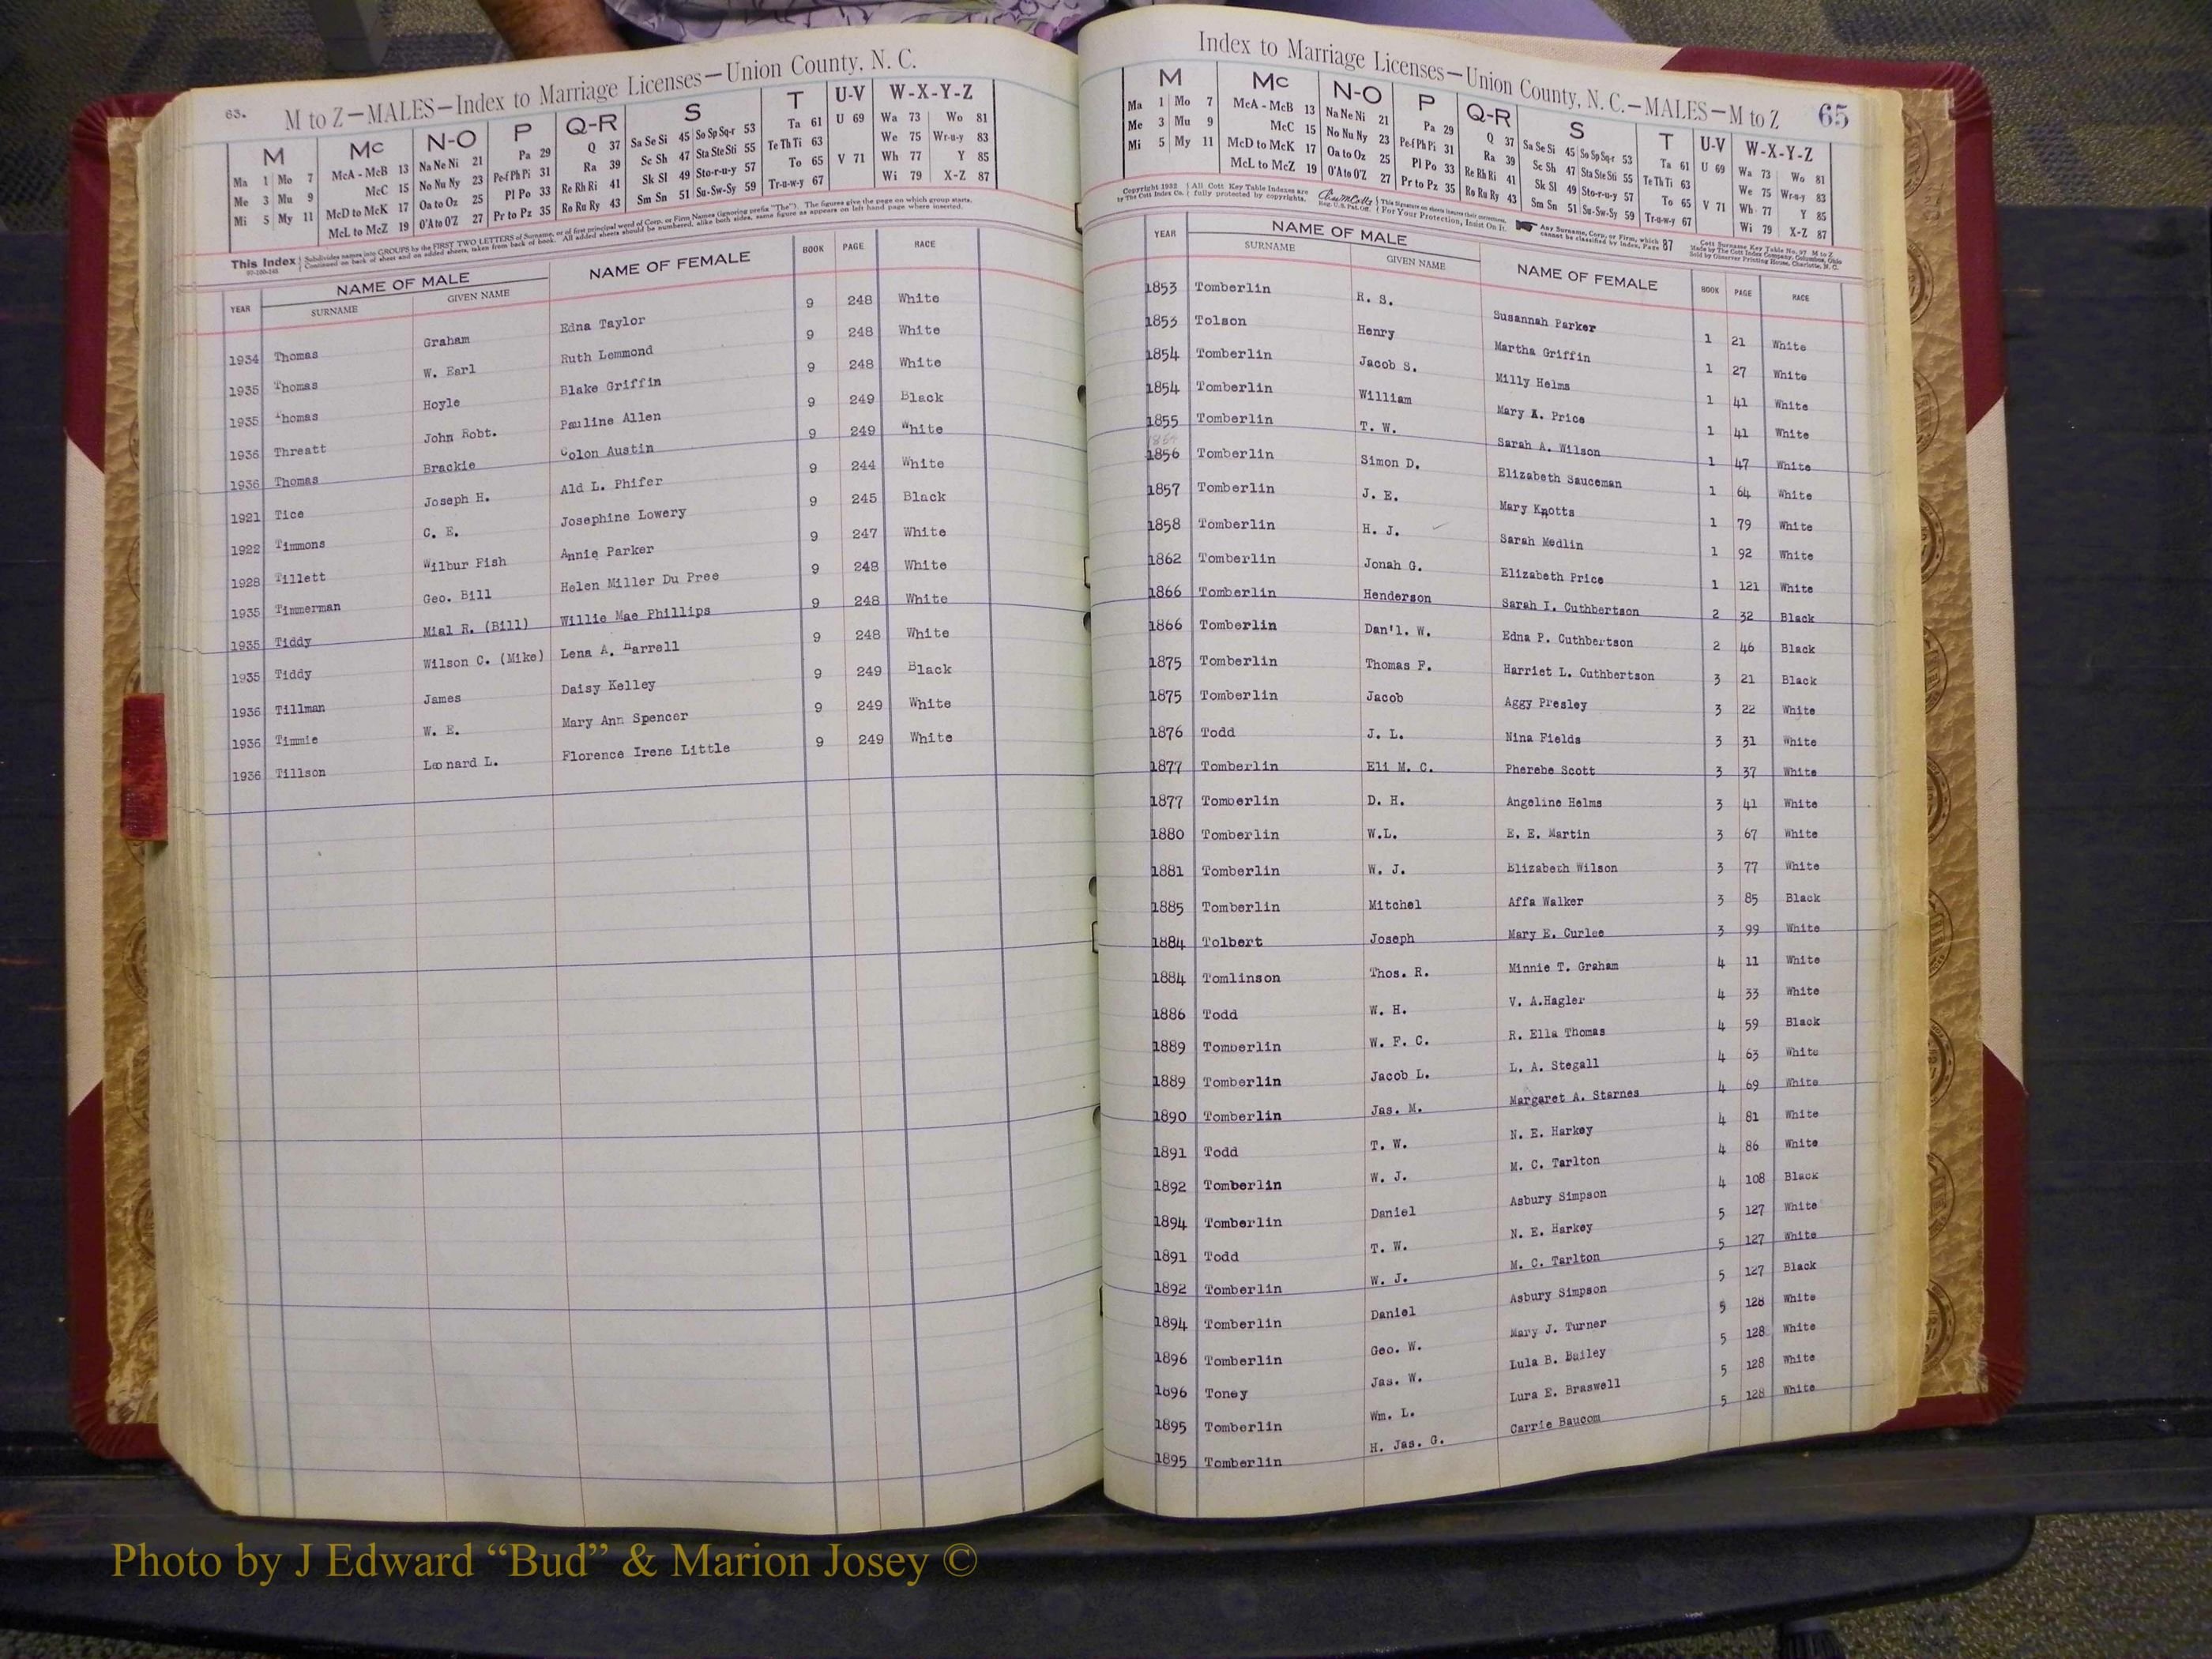 63.
M to Z—MALES—Index to Marriage Licenses—Union County, N. C.
M Mc N-O P Q-R S T U-V W-X-Y-Z
Ma 1 Mo 7 McA - McB 13 Na Ne Ni 21 Pa 29 Q 37 Sa Se Si 45 So Sp Sq-r 53 Ta 61 U 69 Wa 73 Wo 81
Me 3 Mu 9 McC 15 No Nu Ny 23 Pe-f Ph Pi 31 Ra 39 Sc Sh 47 Sta Ste Sti 55 Te Th Ti 63 We 75 Wr-u-y 83
Mi 5 My 11 McD to McK 17 Oa to Oz 25 Pl Po 33 Re Rh Ri 41 Sk Sl 49 Sto-r-u-y 57 To 65 V 71 Wh 77 Y 85
McL to McZ 19 O'A to O'Z 27 Pr to Pz 35 Ro Ru Ry 43 Sm Sn 51 Su-Sw-Sy 59 Tr-u-w-y 67 Wi 79 X-Z 87
This Index Subdivides names into GROUPS by the FIRST TWO LETTERS of Surname, or of first principal word of Corp. or Firm Names (ignoring prefix "The"). The figures give the page on which group starts.
Continued on back of sheet and on added sheets, taken from back of book. All added sheets should be numbered, alike both sides, same figure as appears on left hand page where inserted.
YEAR NAME OF MALE NAME OF FEMALE BOOK PAGE RACE
SURNAME GIVEN NAME
1934 Thomas Graham Edna Taylor 9 248 White
1935 Thomas W. Earl Ruth Lemmond 9 248 White
1935 Thomas Hoyle Blake Griffin 9 248 White
1936 Threatt John Robt. Pauline Allen 9 249 Black
1936 Thomas Brackie Colon Austin 9 249 White
1921 Tice Joseph H. Ald L. Phifer 9 244 White
1922 Timmons C. E. Josephine Lowery 9 245 Black
1928 Tillett Wilbur Fish Annie Parker 9 247 White
1935 Timmerman Geo. Bill Helen Miller Du Pree 9 248 White
1935 Tiddy Mial R. (Bill) Willie Mae Phillips 9 248 White
1935 Tiddy Wilson C. (Mike) Lena A. Harrell 9 248 White
1936 Tillman James Daisy Kelley 9 249 Black
1936 Timmie W. E. Mary Ann Spencer 9 249 White
1936 Tillson Leonard L. Florence Irene Little 9 249 White
Index to Marriage Licenses—Union County, N. C.—MALES—M to Z 65
M Mc N-O P Q-R S T U-V W-X-Y-Z
Ma 1 Mo 7 McA - McB 13 Na Ne Ni 21 Pa 29 Q 37 Sa Se Si 45 So Sp Sq-r 53 Ta 61 U 69 Wa 73 Wo 81
Me 3 Mu 9 McC 15 No Nu Ny 23 Pe-f Ph Pi 31 Ra 39 Sc Sh 47 Sta Ste Sti 55 Te Th Ti 63 We 75 Wr-u-y 83
Mi 5 My 11 McD to McK 17 Oa to Oz 25 Pl Po 33 Re Rh Ri 41 Sk Sl 49 Sto-r-u-y 57 To 65 V 71 Wh 77 Y 85
McL to McZ 19 O'A to O'Z 27 Pr to Pz 35 Ro Ru Ry 43 Sm Sn 51 Su-Sw-Sy 59 Tr-u-w-y 67 Wi 79 X-Z 87
Copyright 1932 by The Cott Index Co. All Cott Key Table Indexes are fully protected by copyrights. Reg. U.S. Pat. Off. For Your Protection, Insist On It. Any Surname, Corp. or Firm, which cannot be classified by Index, Page 87
Cott Surname Key Table No. 97 M to Z
Made by The Cott Index Company, Columbus, Ohio
Sold by Observer Printing House, Charlotte, N. C.
YEAR NAME OF MALE NAME OF FEMALE BOOK PAGE RACE
SURNAME GIVEN NAME
1853 Tomberlin R. S. Susannah Parker 1 21 White
1853 Tolson Henry Martha Griffin 1 27 White
1854 Tomberlin Jacob S. Milly Helms 1 41 White
1854 Tomberlin William Mary A. Price 1 41 White
1855 Tomberlin T. W. Sarah A. Wilson 1 47 White
1856 Tomberlin Simon D. Elizabeth Sauceman 1 64 White
1857 Tomberlin J. E. Mary Knotts 1 79 White
1858 Tomberlin H. J. Sarah Medlin 1 92 White
1862 Tomberlin Jonah G. Elizabeth Price 1 121 White
1866 Tomberlin Henderson Sarah I. Cuthbertson 2 32 Black
1866 Tomberlin Dan'l. W. Edna P. Cuthbertson 2 46 Black
1875 Tomberlin Thomas F. Harriet L. Cuthbertson 3 21 Black
1875 Tomberlin Jacob Aggy Presley 3 22 White
1876 Todd J. L. Nina Fields 3 31 White
1877 Tomberlin Eli M. C. Pherebe Scott 3 37 White
1877 Tomberlin D. H. Angeline Helms 3 41 White
1880 Tomberlin W.L. E. E. Martin 3 67 White
1881 Tomberlin W. J. Elizabeth Wilson 3 77 White
1885 Tomberlin Mitchel Affa Walker 3 85 Black
1884 Tolbert Joseph Mary E. Curlee 3 99 White
1884 Tomlinson Thos. R. Minnie T. Graham 4 11 White
1886 Todd W. H. V. A.Hagler 4 33 White
1889 Tomberlin W. F. C. R. Ella Thomas 4 59 Black
1889 Tomberlin Jacob L. L. A. Stegall 4 63 White
1890 Tomberlin Jas. M. Margaret A. Starnes 4 69 White
1891 Todd T. W. N. E. Harkey 4 81 White
1892 Tomberlin W. J. M. C. Tarlton 4 86 White
1894 Tomberlin Daniel Asbury Simpson 4 108 Black
1891 Todd T. W. N. E. Harkey 5 127 White
1892 Tomberlin W. J. M. C. Tarlton 5 127 White
1894 Tomberlin Daniel Asbury Simpson 5 127 Black
1896 Tomberlin Geo. W. Mary J. Turner 5 128 White
1896 Toney Jas. W. Lula B. Bailey 5 128 White
1895 Tomberlin Wm. L. Lura E. Braswell 5 128 White
1895 Tomberlin H. Jas. G. Carrie Baucom 5 128 White
Photo by J Edward “Bud” & Marion Josey ©